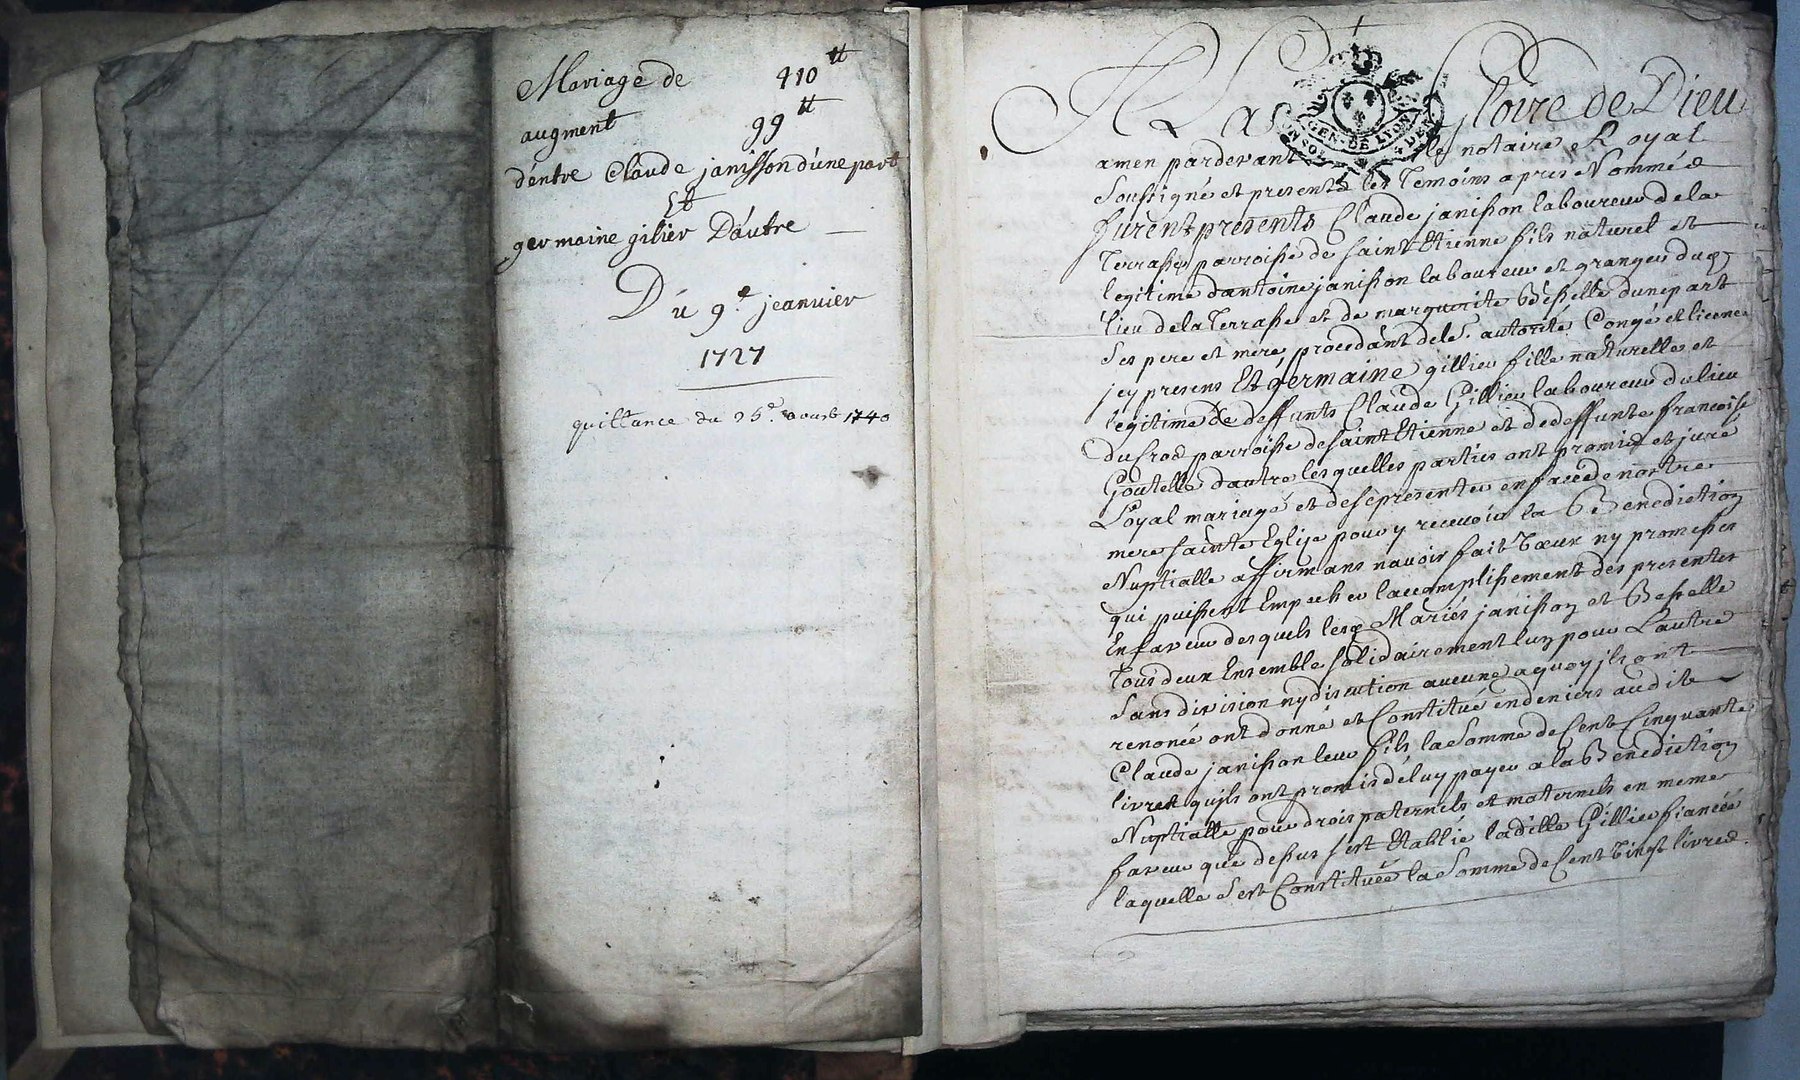 Mariage de 410 ₶
augment 99 ₶
d'entre Claude janisson d'une part
Et
germaine gilier D'autre
Du 9.e jeanvier
1727
quittance du 25.e aoust 1740
A La Gloire de Dieu
GEN. DE LYON
amen pardevant le notaire Royal
Soussigné et presents les Temoins apres Nommés
furent presents Claude janisson laboureur de la
Terrasse parroisse de saint Etienne fils naturel et
legitime dantoine janisson laboureur et granger dud
lieu de la Terrasse et de marguerite Besselle dune part
Ses pere et mere procedant de le.s autorité Congé et licence
jcy presens Et germaine gillier fille naturelle et
legitime de deffunts Claude Gillier laboureur du lieu
du cros parroisse de saint Etienne et de deffunte francoise
Goutelle dautre lesquelles parties ont promis et juré
Loyal mariage et de se presenter en face de nostre
mere sainte Eglise pour y recevoir la Benediction
Nuptialle affirmans navoir fait vœux ny promesses
qui puissent Empecher laccomplissement des presentes
En faveur desquels lesd Mariés janisson et Besselle
Tous deux Ensemble solidairement lun pour Lautre
Sans division ny discution aucune a quoy jls ont
renoncé ont donné et Constitué en deniers audit
Claude janisson leur fils la somme de Cent Cinquante
livres qujls ont promis de luy payer a la Benediction
Nuptialle pour drois paternels et maternels en meme
faveur que dessus sest Etablie ladille Gillier fiancée
laquelle sest Constituée la Somme de Cent vingt livres